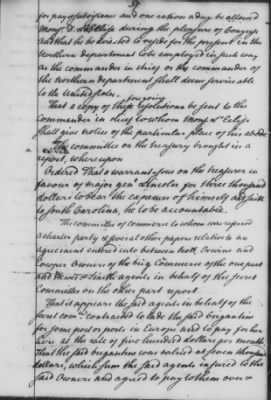 for pay & subsistence and one ration a day be allowed
Mons.r D. during the pleasure of Congress
and that he be directed to reside for the present in the
northern department to be employed in such way
as the commander in chief or the commander of
the northern department shall deem serviceable
to the United States.
That a copy of these foregoing resolutions be sent to the
commander in chief to whom Mons.r
shall give notice of the particular place of his abode
The committee on the treasury brought in a
report, whereupon
Ordered That a warrant issue on the treasurer in
favour of major gen.l Lincoln for three thousand
dollars to bear the expences of himself and suite
to South Carolina, he to be accountable.
The committee of commerce to whom was referred
a charter party & several other papers relative to an
agreement entered into between Scott, Irwine and
Cowper Owners of the brig Commerce of the one part
and agents in behalf of the secret
Committee on the other part report.
That it appears the said agents in behalf of the
secret com.ee contracted to lade the said brigantine
for some port or ports in Europe and to pay for her
hire at the rate of five hundred dollars per month
that the said brigantine was valued at seven thousand
dollars, which sum the said agents insured to the
said Owners and agreed to pay to them over &